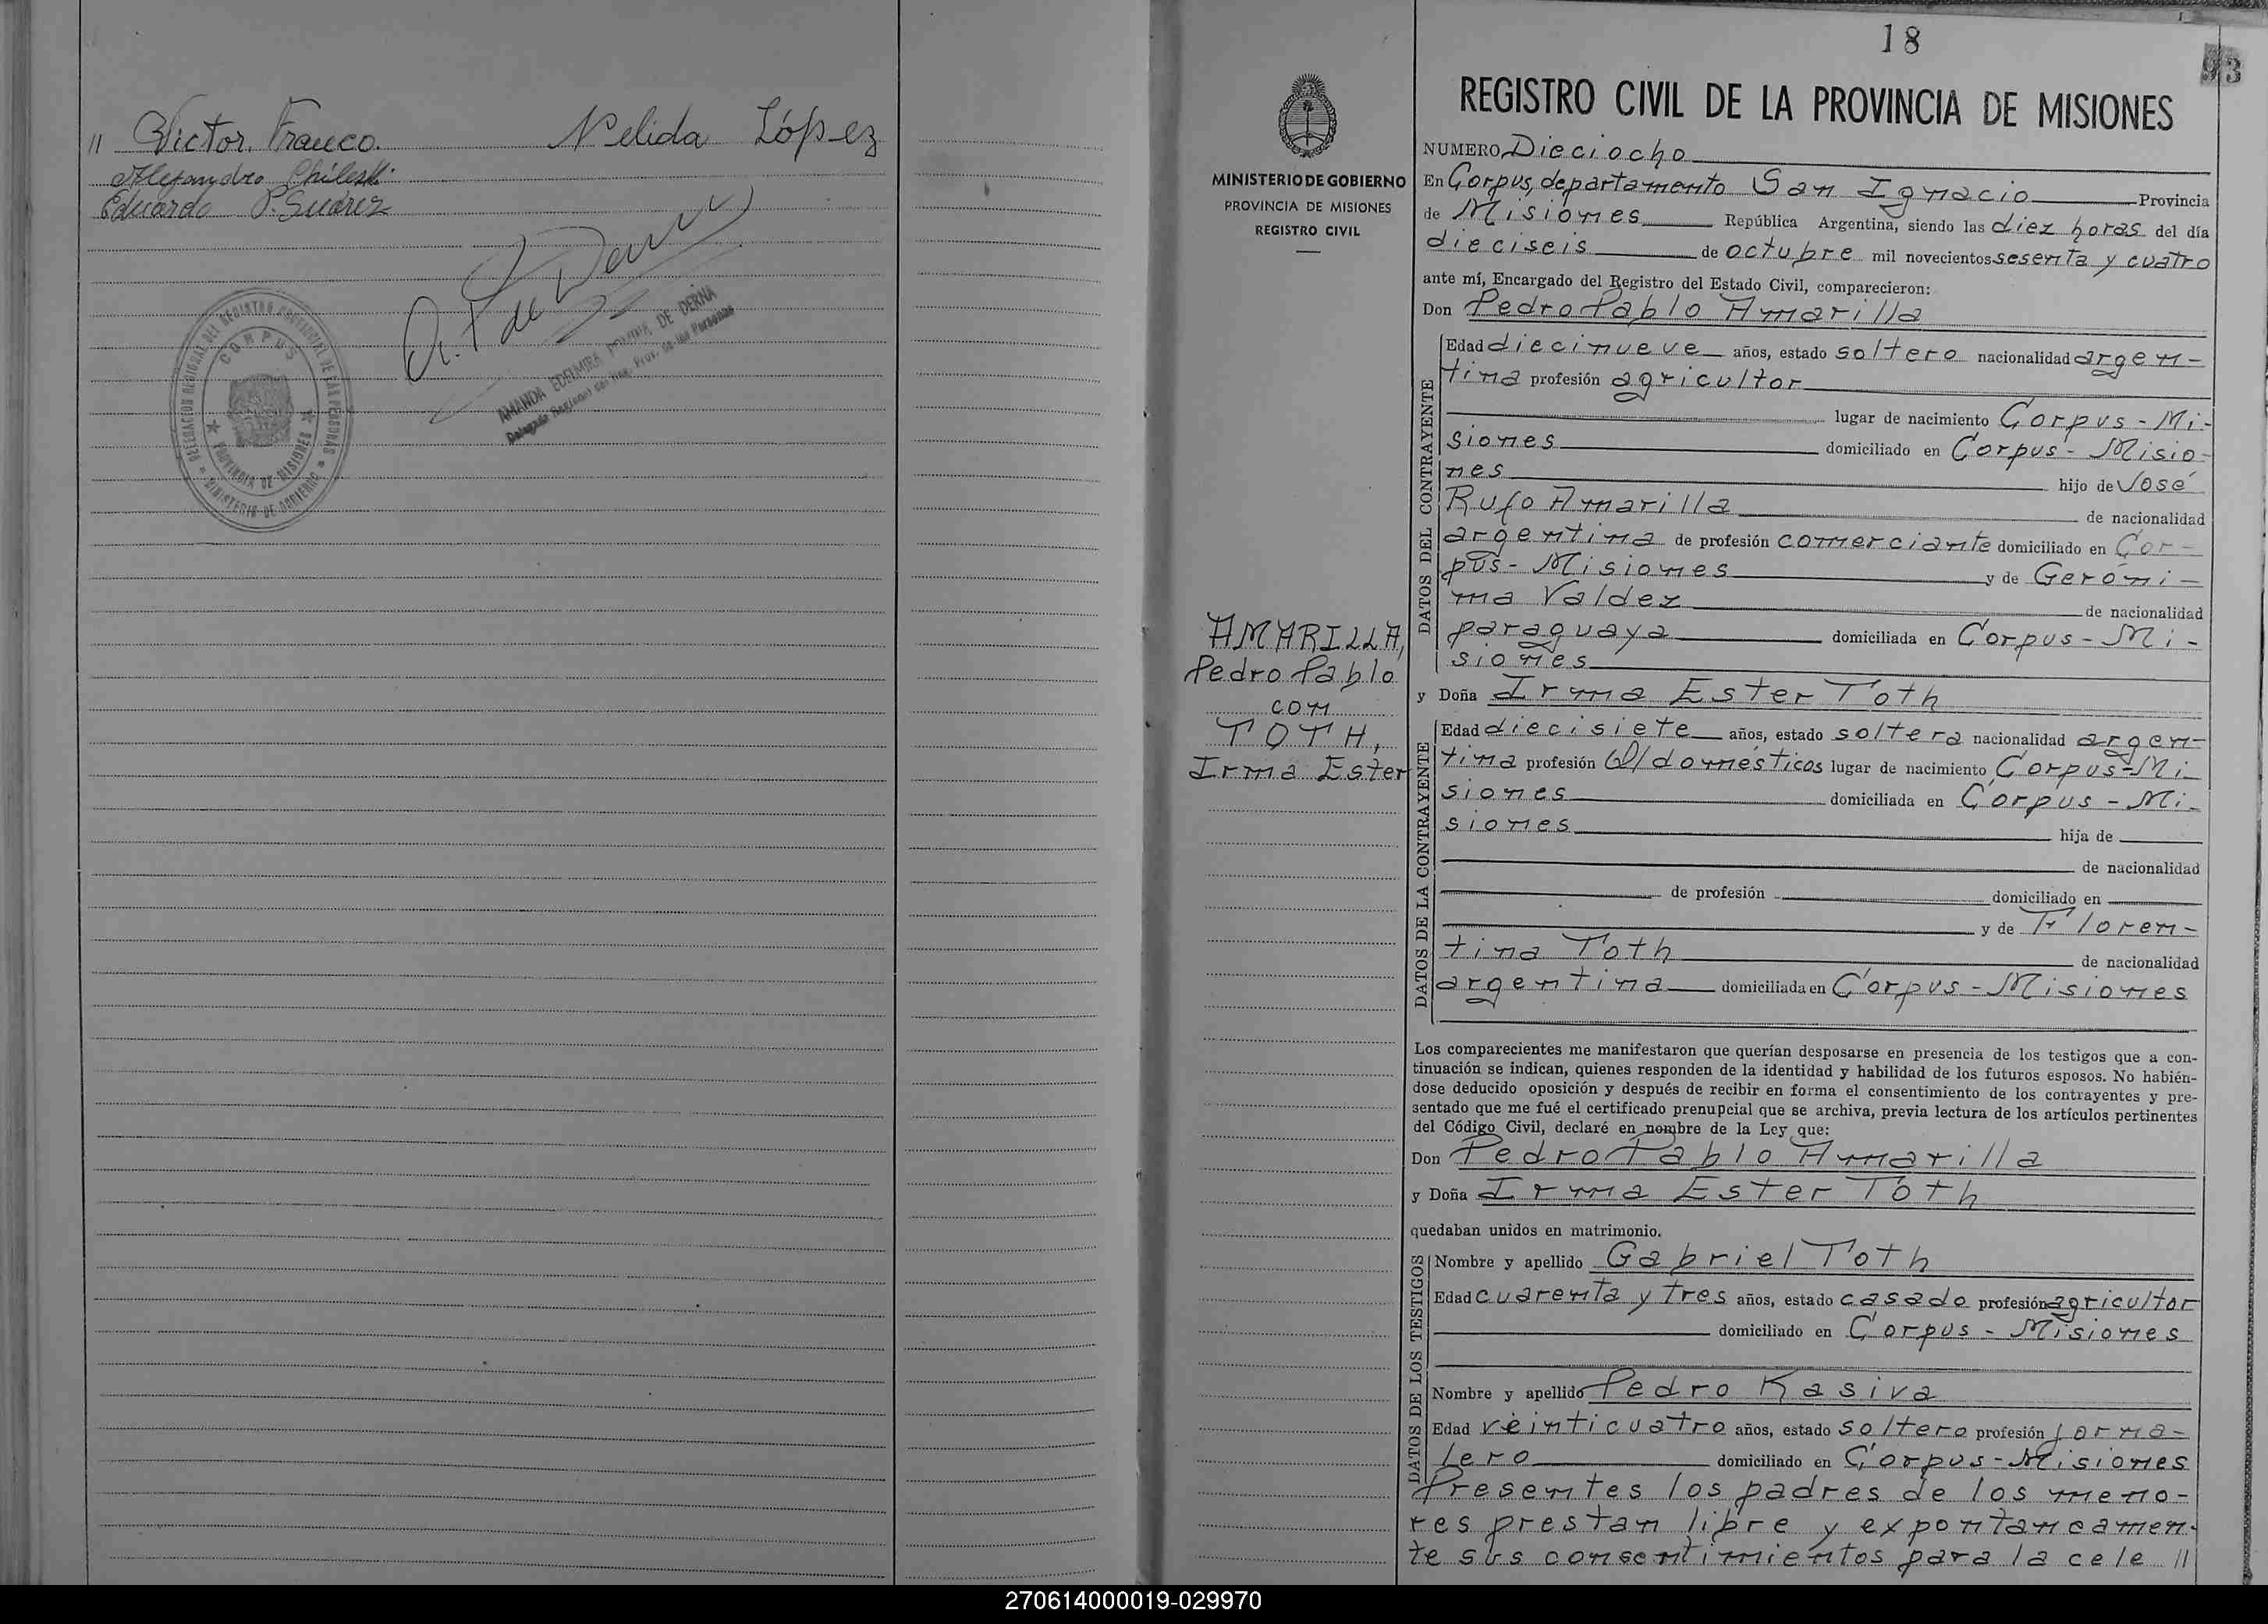 " Victor Franco. Nelida López
Alejandro Chileski
Eduardo P. Suárez
DELEGACION REGIONAL DEL REGISTRO PROVINCIAL DE LAS PERSONAS
CORPUS
PROVINCIA DE MISIONES
MINISTERIO DE GOBIERNO
AMANDA EDELMIRA DE DERNA
Delegada Regional del Reg. Prov. de las Personas
18
93
MINISTERIO DE GOBIERNO
PROVINCIA DE MISIONES
REGISTRO CIVIL
AMARILLA,
Pedro Pablo
con
TOTH,
Irma Ester
REGISTRO CIVIL DE LA PROVINCIA DE MISIONES
NUMERO Dieciocho
En Corpus, departamento San Ignacio Provincia
de Misiones República Argentina, siendo las diez horas del día
dieciseis de octubre mil novecientos sesenta y cuatro
ante mí, Encargado del Registro del Estado Civil, comparecieron:
Don Pedro Pablo Amarilla
DATOS DEL CONTRAYENTE
Edad diecinueve años, estado soltero nacionalidad argen-
tina profesión agricultor
lugar de nacimiento Corpus - Mi-
siones domiciliado en Corpus - Misio-
nes hijo de José
Rufo Amarilla de nacionalidad
argentina de profesión comerciante domiciliado en Cor-
pus - Misiones y de Geróni-
ma Valdez de nacionalidad
paraguaya domiciliada en Corpus - Mi-
siones
y Doña Irma Ester Toth
DATOS DE LA CONTRAYENTE
Edad diecisiete años, estado soltera nacionalidad argen-
tina profesión Q/domésticos lugar de nacimiento Corpus - Mi-
siones domiciliada en Corpus - Mi-
siones hija de
de nacionalidad
de profesión domiciliado en
y de Floren-
tina Toth de nacionalidad
argentina domiciliada en Corpus - Misiones
Los comparecientes me manifestaron que querían desposarse en presencia de los testigos que a con-
tinuación se indican, quienes responden de la identidad y habilidad de los futuros esposos. No habién-
dose deducido oposición y después de recibir en forma el consentimiento de los contrayentes y pre-
sentado que me fué el certificado prenupcial que se archiva, previa lectura de los artículos pertinentes
del Código Civil, declaré en nombre de la Ley que:
Don Pedro Pablo Amarilla
y Doña Irma Ester Toth
quedaban unidos en matrimonio.
DATOS DE LOS TESTIGOS
Nombre y apellido Gabriel Toth
Edad cuarenta y tres años, estado casado profesión agricultor
domiciliado en Corpus - Misiones
Nombre y apellido Pedro Kasiva
Edad veinticuatro años, estado soltero profesión jorna-
lero domiciliado en Corpus - Misiones
Presentes los padres de los meno-
res prestan libre y expontaneamen-
te sus consentimientos para la cele //
270614000019-029970